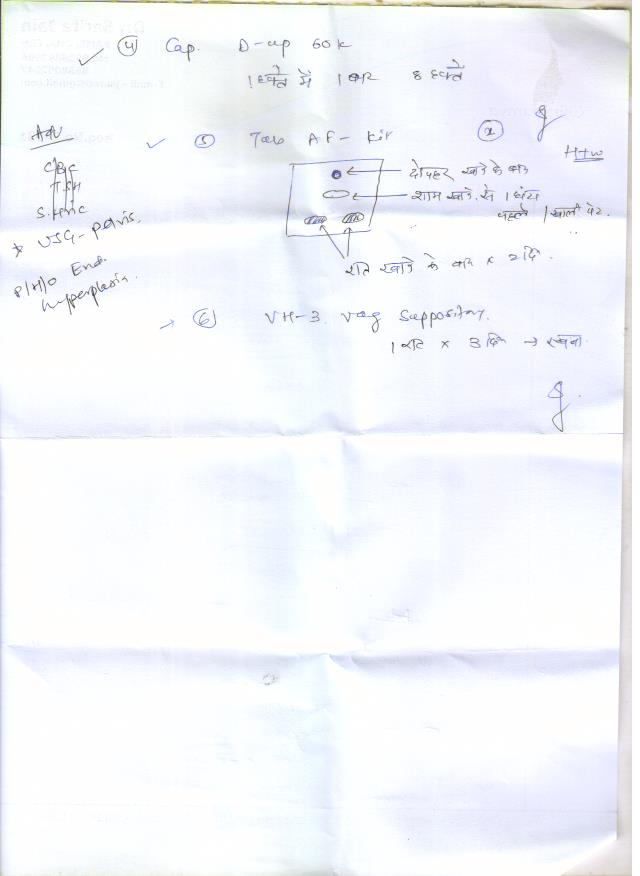 ④ Cap. D-up 60k
1 हफ्ते में 1 बार 8 हफ्ते
Adv
CBC
TSH
S.
* USG-pelvis.
P/H/O End.
hyperplasia.
⑤ Tab AF-Kit
H+W
दोपहर खाने के बाद
शाम खाने से 1 घंटा
पहले / खाली पेट.
रात खाने के बाद x 2 दि.
⑥ VH-3. Vag Suppository.
1 रात x 3 दिन →